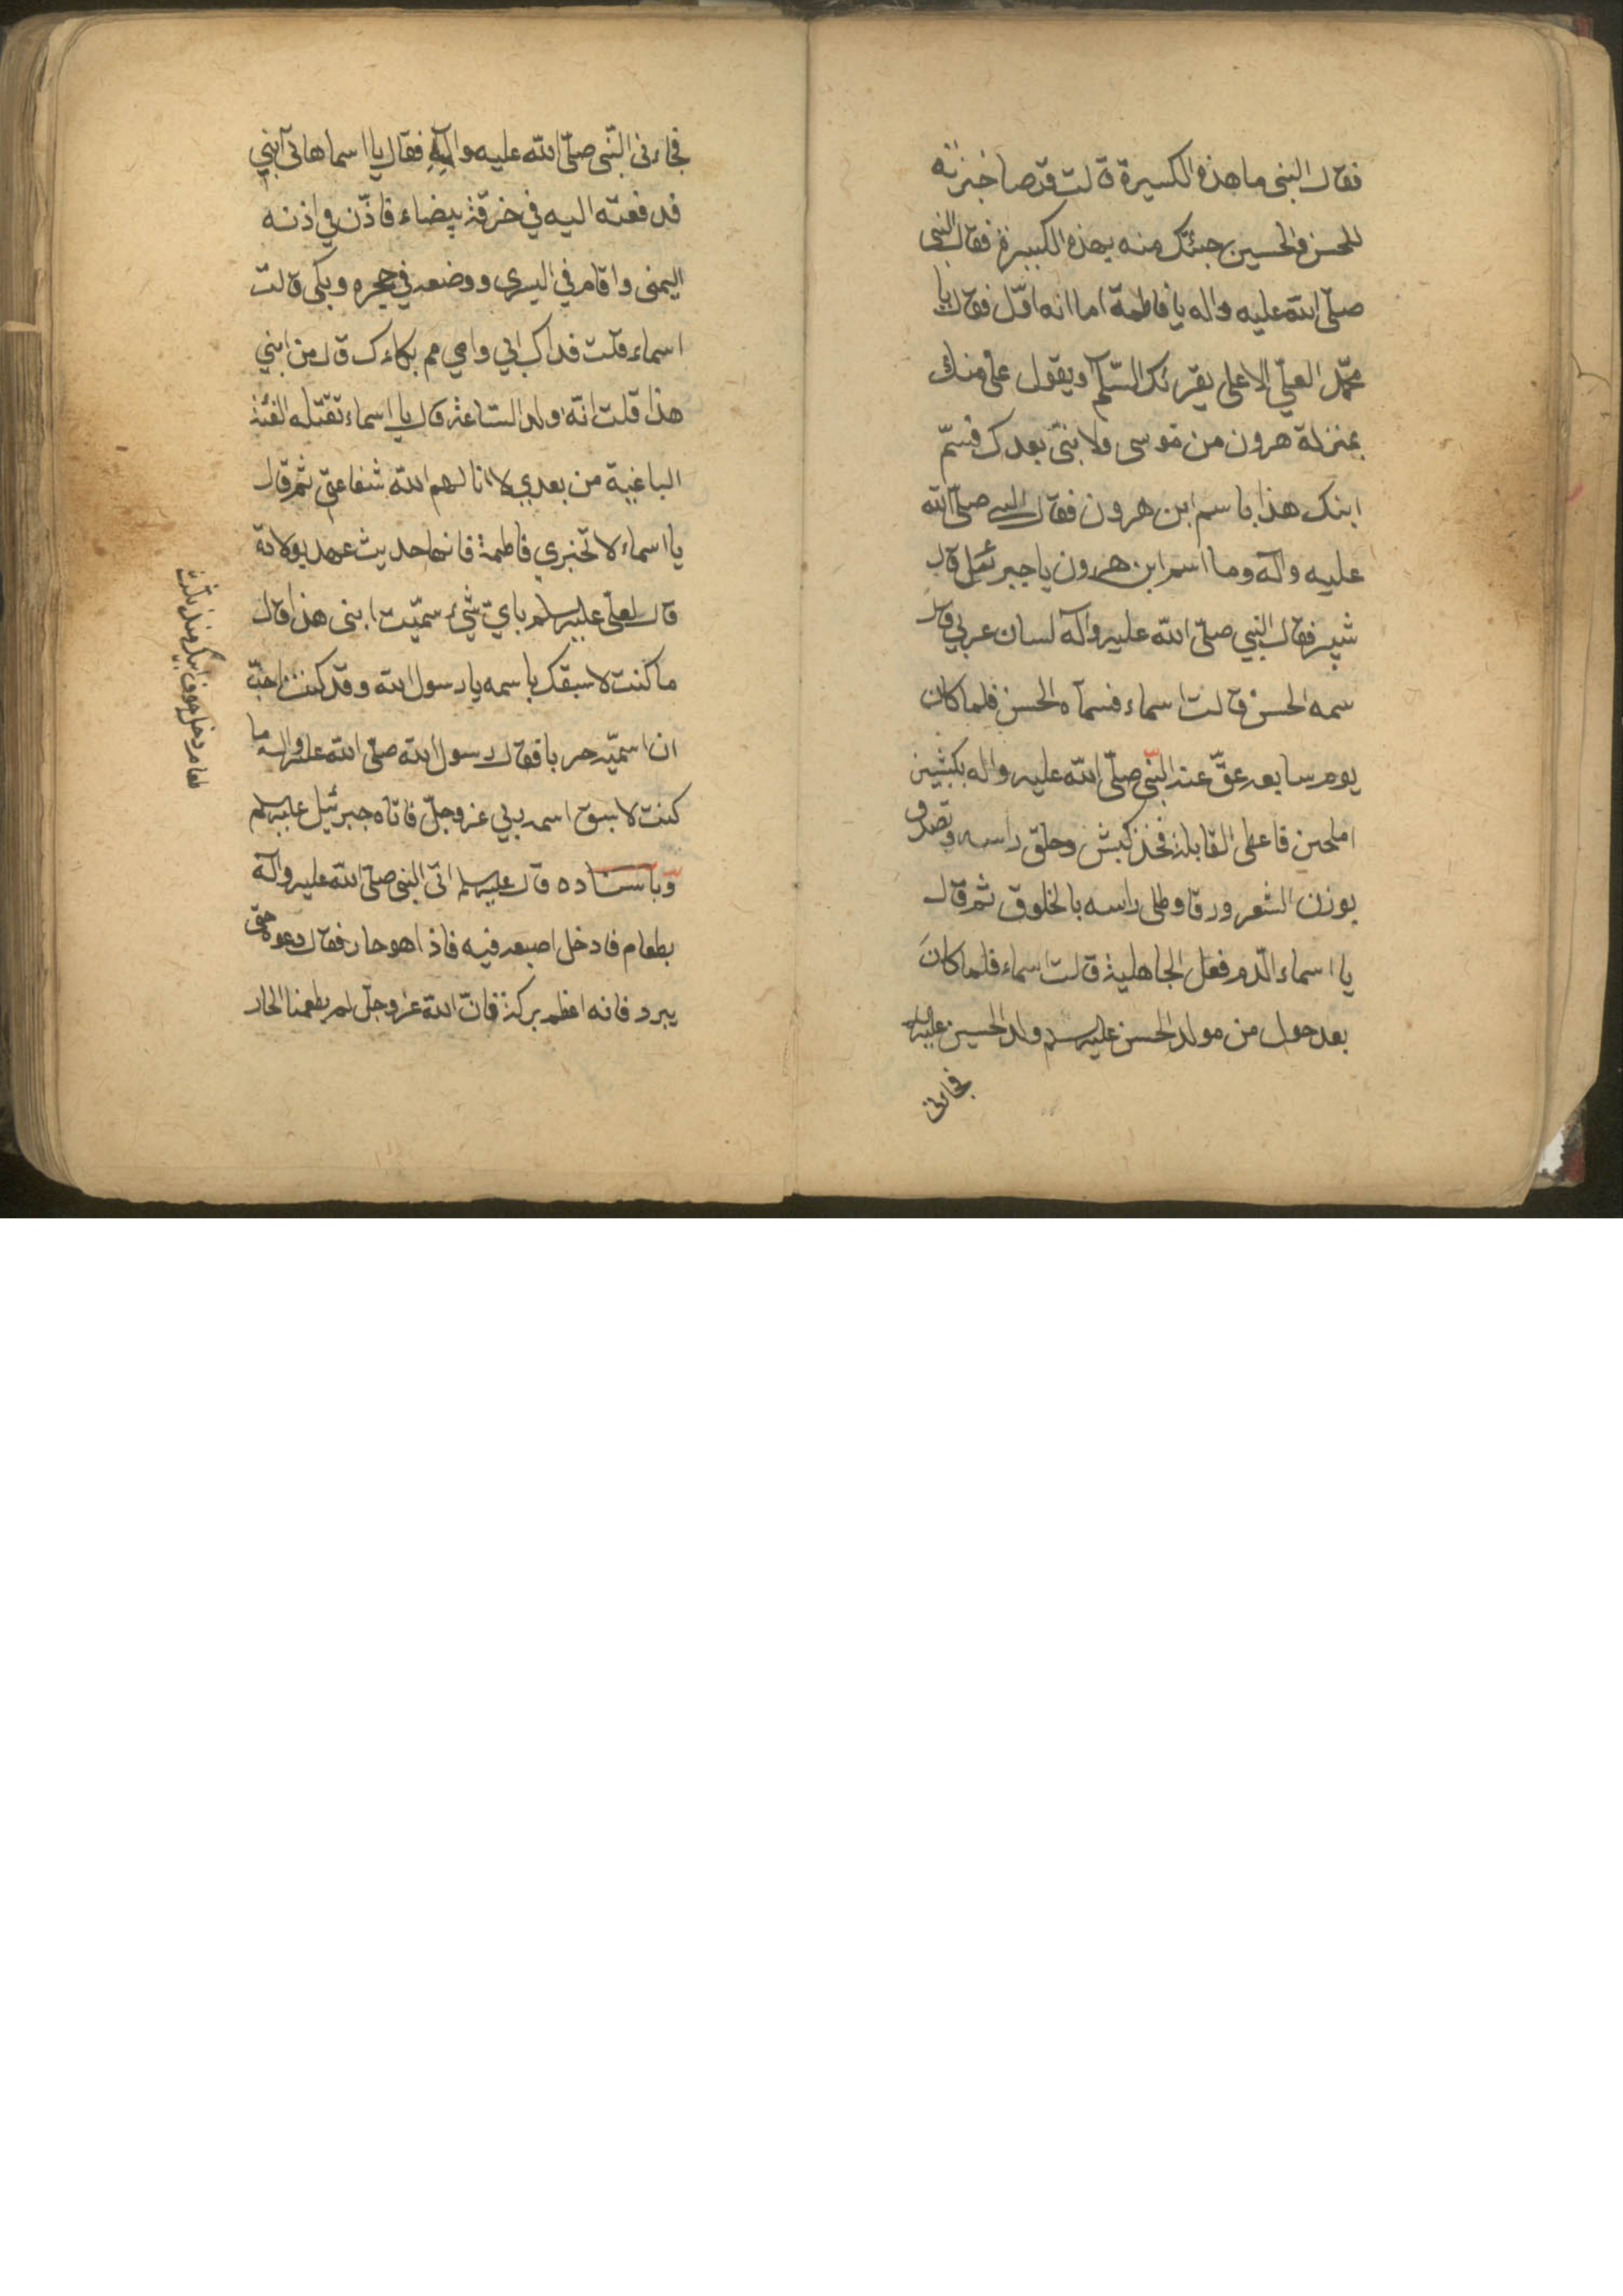 فقال النبی ما هذه الكسيرة قالت قرصا خبزته
للحسن والحسين جئتك منه بهذه الكسيرة فقال النبی
صلّی الله عليه واله يا فاطمة اما انه اوّل فقال يا
محمّد العلیّ الاعلی يقرئك السّلم ويقول علی منك
بمنزلة هرون من موسی ولا نبیّ بعدك فسمّ
ابنك هذا باسم ابن هرون فقال النبی صلّی الله
عليه وآله وما اسم ابن هرون يا جبرئيل قال
شبر فقال النبي صلّی الله عليه وآله لسان عربي قال
سمه الحسن قالت اسماء فسمّاه الحسن فلما كان
يوم سابعه عقّ عنه النّبی صلّی الله عليه واله بكبشين
املحين فاعطی القابلة فخذ كبش وحلق راسه وتصدق
بوزن الشعر ورقا وطلی راسه بالخلوق ثم قال
يا اسماء الدّم فعل الجاهلية قالت اسماء فلما كانَ
بعد حول من مولد الحسن عليه السلم ولد الحسين عليه السلم
فجائنی
فجاءنی النّبی صلّی الله عليه وآلِهِ فقال يا اسما هاتی ابني
فدفعته اليه في خرقة بيضاء فاذّن في اذنه
اليمنی واقام في اليسری ووضعه في حجره وبكی قالت
اسماء قلت فداك ابي وامي مم بكاءك قال من ابني
هذا قلت انّه ولد الساعة قال يا اسماء تقتله الفئة
الباغية من بعدي لا انالهم الله شفاعتی ثم قال
يا اسماء لا تخبري فاطمة فانها حديث عهد بولادة
قال لعلی عليه السلم باي شیء سمّيت ابنی هذا قال
ما كنت لاسبقك باسمه يا رسول الله وقد كنت احبّ
ان اسمّيه حربا فقال رسول الله صلّی الله عليه واله ما
كنت لاسبق اسمه ربي عز وجلّ فاتاه جبرئيل عليه السلم
وباسناده قال عليه السلم اتی النبی صلّی الله عليه وآله
بطعام فادخل اصبعه فيه فاذا هو حار فقال دعوه حتی
يبرد فانه اعظم بركة فانّ الله عز وجلّ لم يطعمنا الحار